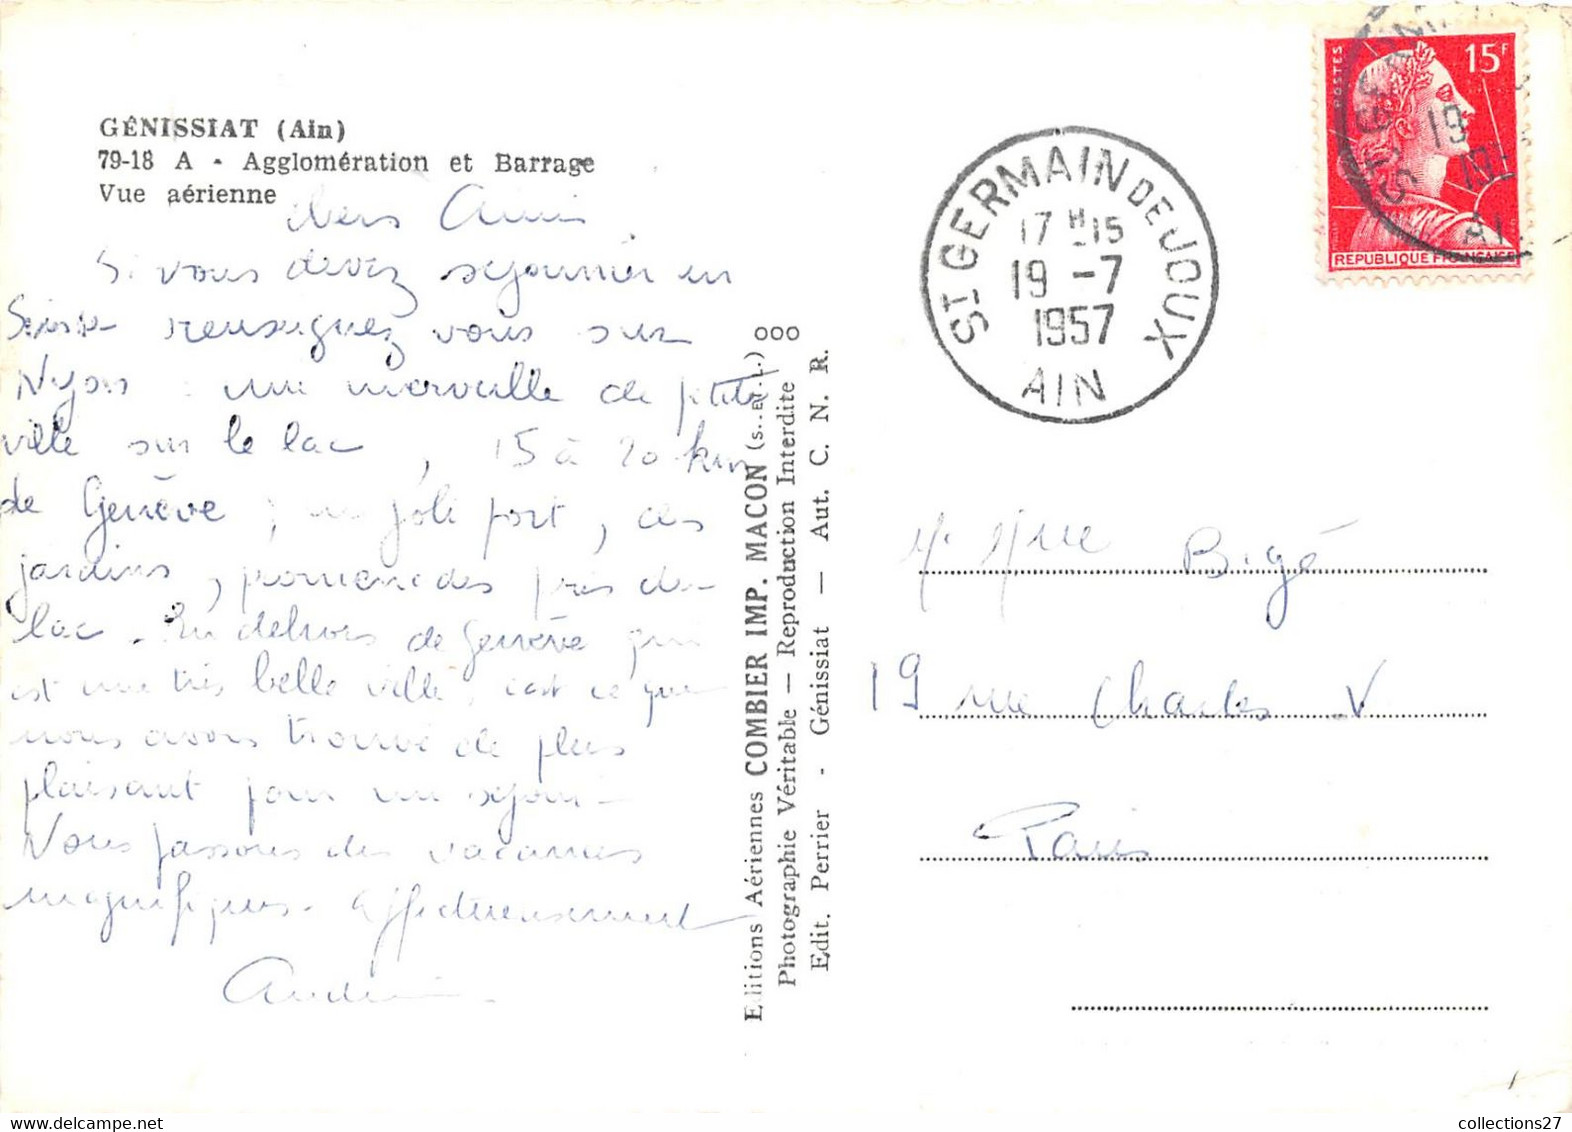 GÉNISSIAT (Ain)
79-18 A - Agglomération et Barrage
Vue aérienne
Chers Amis
Si vous devez séjourner en
Suisse renseignez vous sur
Nyon : une merveille de petite
ville sur le lac, 15 à 20 km
de Genève, un joli port, des
jardins, promenades près du
lac. En dehors de Genève qui
est une très belle ville, c'est ce que
nous avons trouvé de plus
plaisant pour un séjour.
Nous passons des vacances
magnifiques. Affectueusement
Editions Aériennes COMBIER IMP. MACON
Photographie Véritable — Reproduction Interdite
Edit. Perrier - Génissiat — Aut. C. N. R.
000
ST GERMAIN DE JOUX
17H15
19 -7
1957
AIN
POSTES
15F
REPUBLIQUE FRANÇAISE
ST GERMAIN
19
195
AI
M. Mme Bigé
19 rue Charles V
Paris
collections27